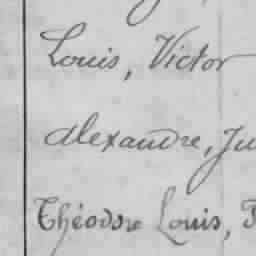 Louis, Victor
Alexandre, Ju
Théodore Louis,